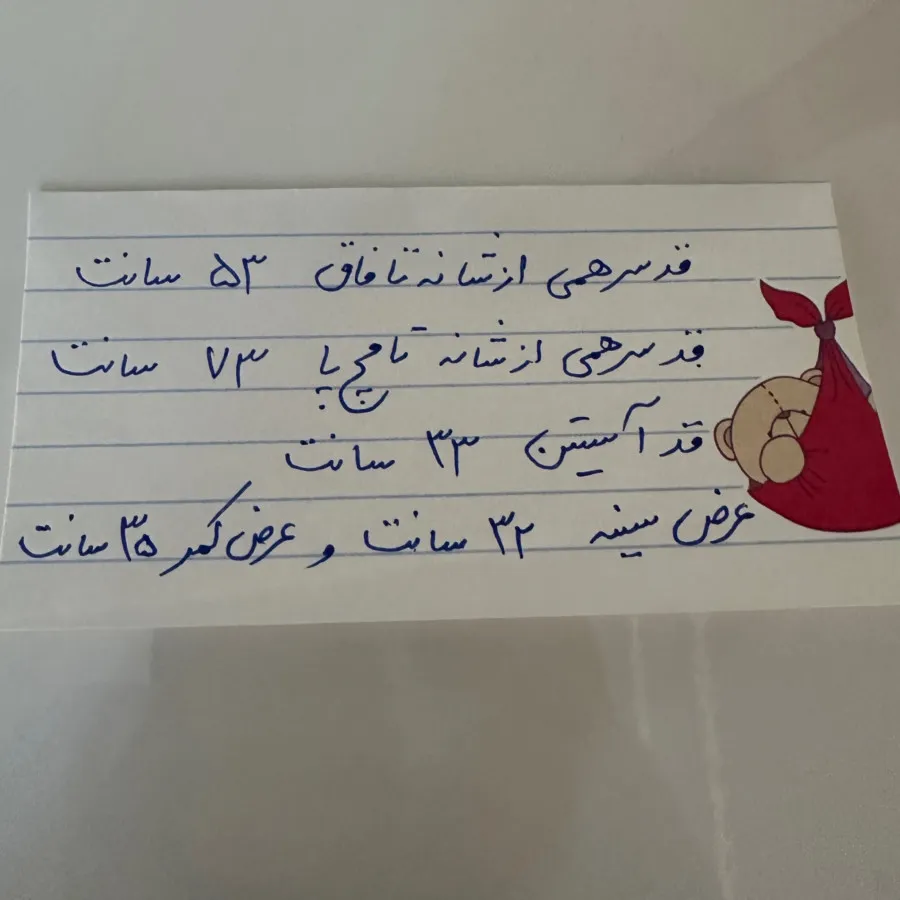 قد سرهمی از شانه تا فاق ۵۳ سانت
قد سرهمی از شانه تا مچ پا ۷۳ سانت
قد آستین ۳۳ سانت
عرض سینه ۳۲ سانت و عرض کمر ۳۵ سانت